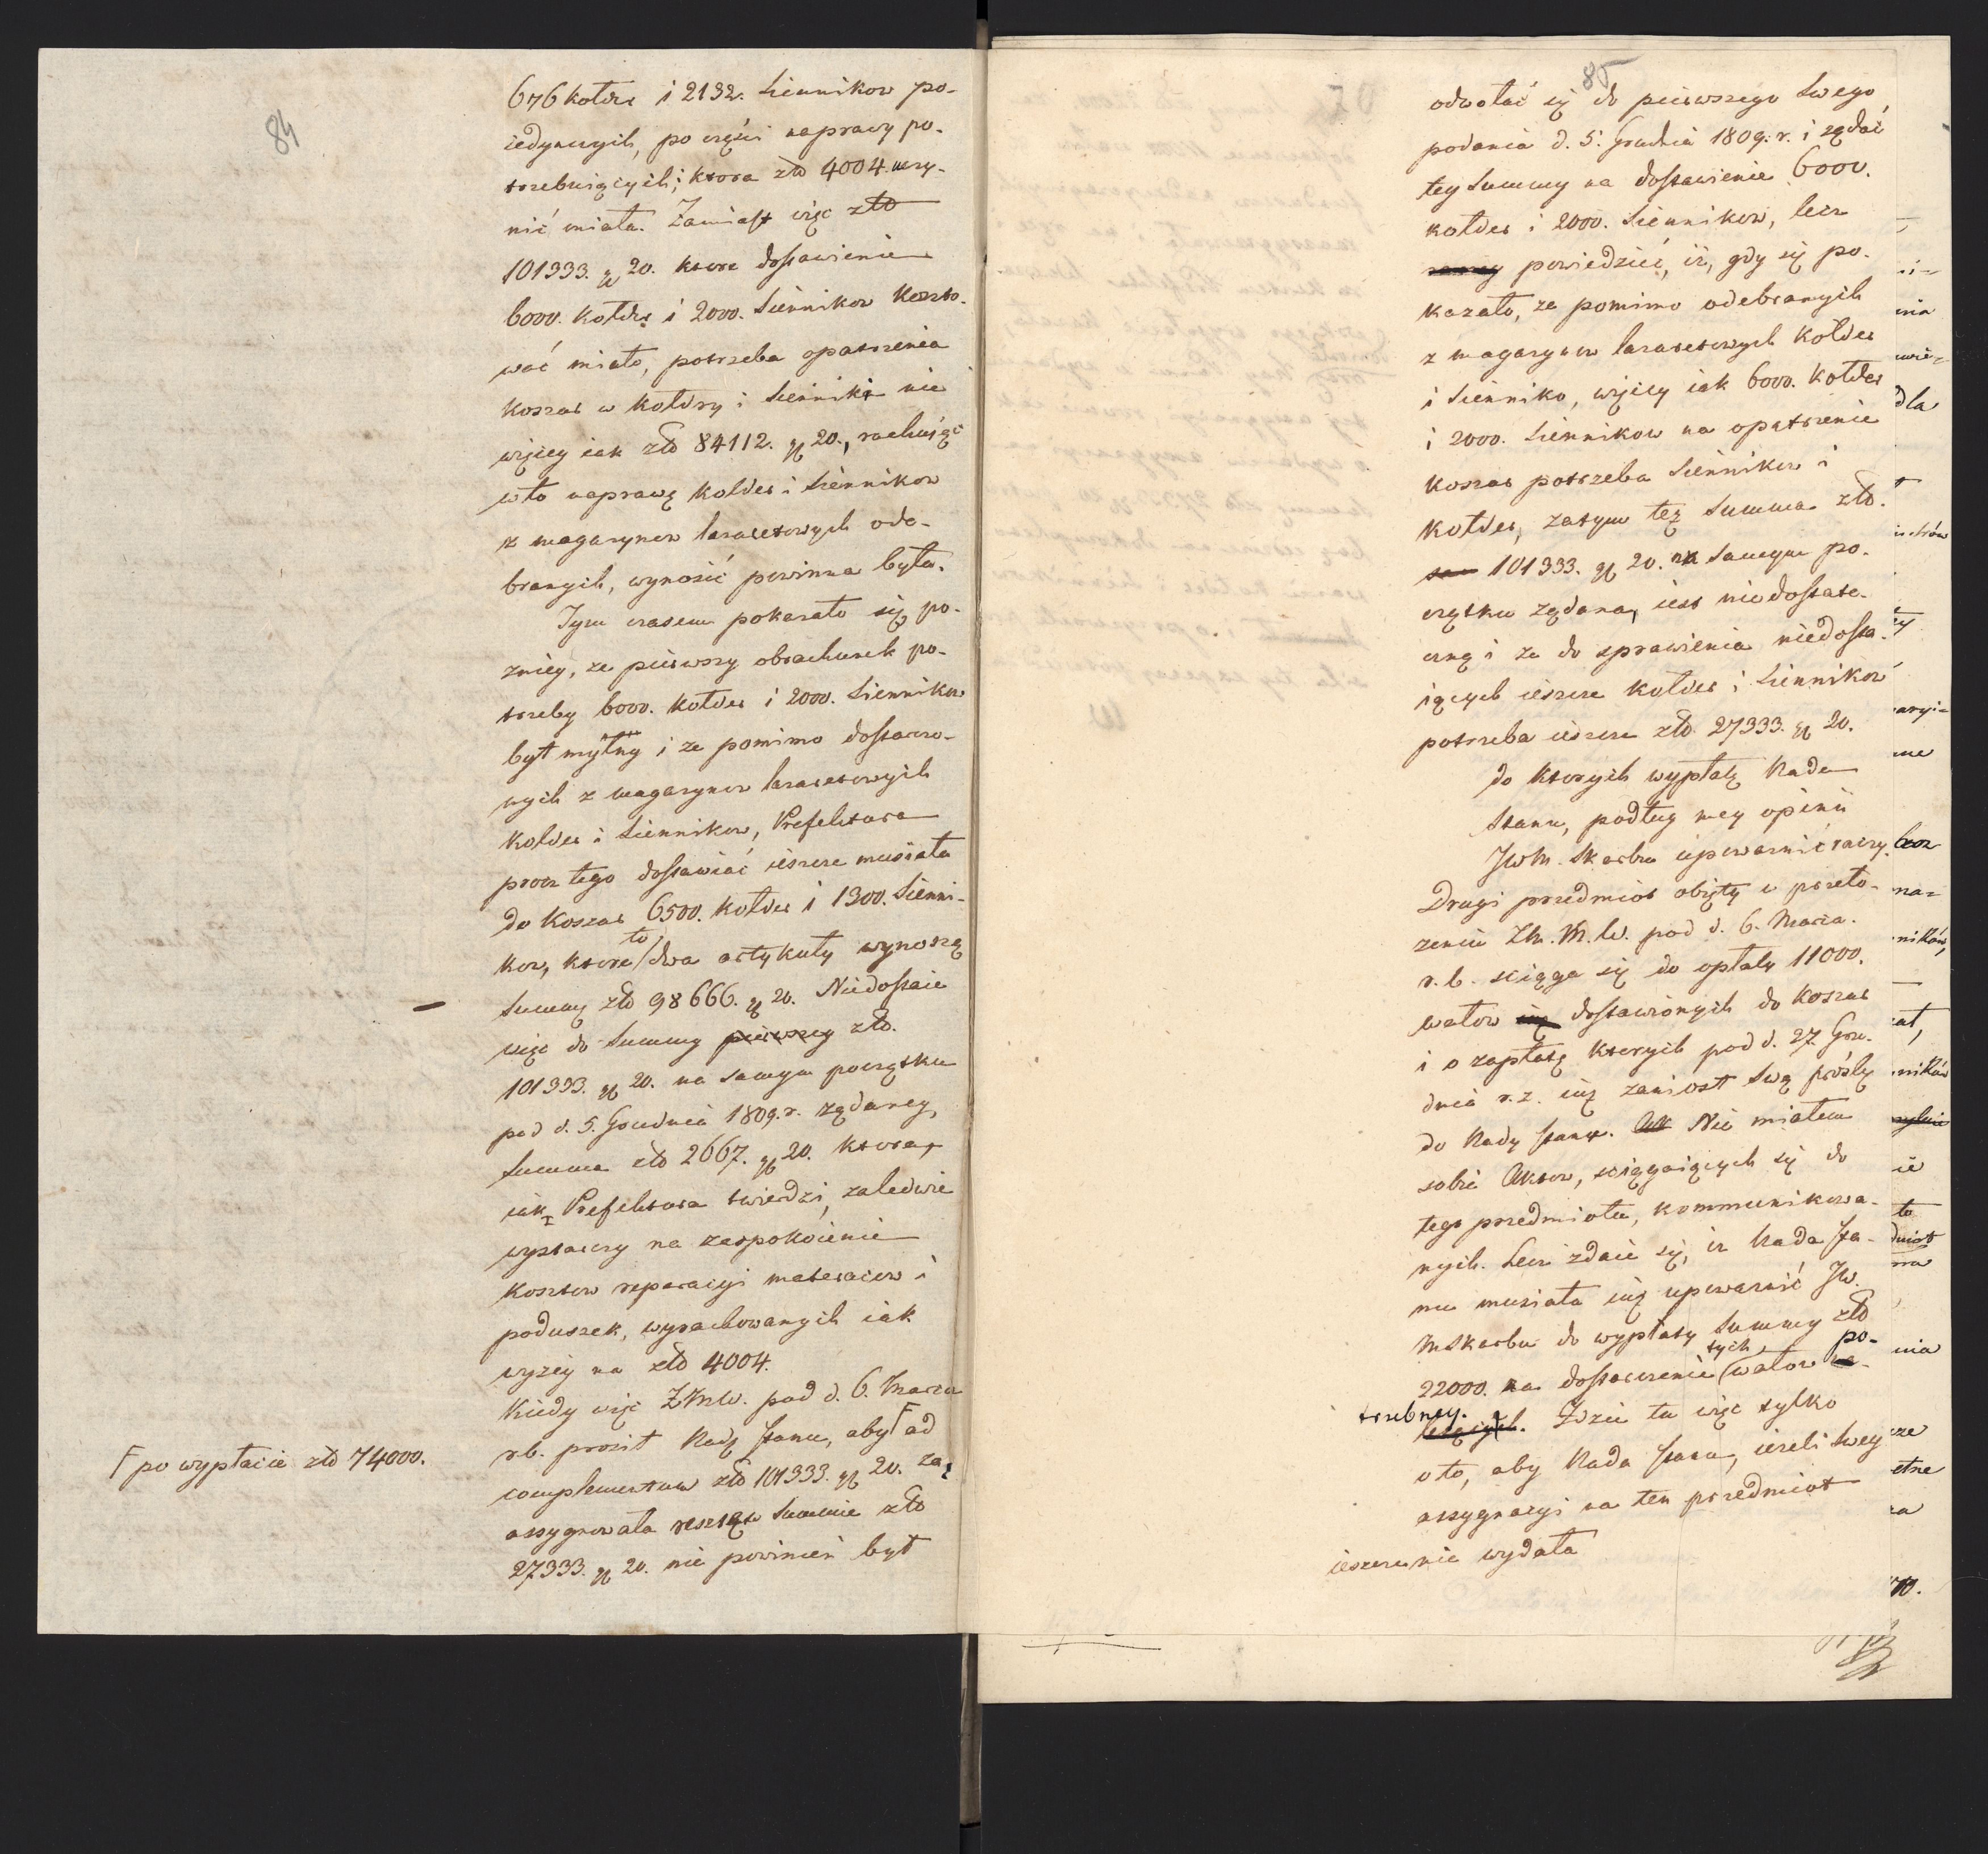 84
676 kołder i 2132. Siennikow po-
iedynczych, po części naprawy po-
trzebuiących; ktora zło 4004. uczy-
nić miała. Zamiast więc zło
101333. gr 20. ktore dostawienie
6000. kołder i 2000. Siennikow koszto-
wać miało, potrzeba opatrzenia
koszar w kołdry i Sienniki nie
więcey iak zło 84112. gr 20., rachuiąc
w to naprawę kolder i Siennikow
z magazynow lazaretowych ode-
branych, wynosić powinna była.
Tym czasem pokazało się po-
zniey, ze pierwszy obrachunek po-
trzeby 6000. kołder i 2000. Siennikow
był mylny i ze pomimo dostarczo-
nych z magazynow lazaretowych
kolder i Siennikow, Prefektura
procz tego dostawiać ieszcze musiała
do Koszar 6500. kołder i 1300. Sienni-
kow, ktore to dwa artykuły wynoszą
Summę zło 98666. gr 20. Niedostaie
więc do Summy pierwszey zło.
101333. gr 20. na samym początku
pod d. 5. Grudnia 1809. r. ządaney,
Summa zło 2667. gr 20. ktora,
iak Prefektura twierdzi, zaledwie
wystarczy na zaspokoienie
kosztow reparacyi materacow i
poduszek, wyrachowanych iak
wyzey na zło 4004.
Kiedy więc ZMW. pod d. 6. Marca
r. b. prosił Radę Stanu, aby F ad
complementum zło 101333. gr 20. za,
assygnowała resztę w Summie zło
27333. gr 20. nie powinien był
F po wypłacie zło 74000.
85
odwołać się do pierwszego Swego
podania d. 5. Grudnia 1809. r. i ządać
tey Summy na dostawienie 6000.
kołder i 2000. Siennikow, lecz
powiedzieć, iż, gdy się po-
kazało, ze pomimo odebranych
z magazynow lazaretowych kołder
i Sienniko, więcey iak 6000. kołder
i 2000. Siennikow na opatrzenie
koszar potrzeba Siennikow i
kołder, zatym też Summa zło.
101333. gr 20. na samym po-
czątku ządana, iest niedostate-
czną i ze do sprawienia niedosta-
iących ieszcze kołder i Siennikow
potrzeba ieszcze zło 27333. gr 20.
do ktorych wypłaty Rada
Stanu, podług mey opinii
JWM. Skarbu upowaznić raczy.
Drugi przedmiot obięty w przeło-
zeniu ZM. M. W. pod d. 6. Marca.
r. b. sciąga się do opłaty 11000.
watow dostawionych do koszar
i o zapłatę ktorych pod d. 27. Gru-
dnia r. z. iuż zaniosł Swą prośbę
do Rady Stanu. Nie miałem
sobie Aktow, sciągaiących się do
tego przedmiotu, kommunikowa-
nych. Lecz zdaie się, iz Rada Sta-
nu musiała iuż upowaznić JW.
M Skarbu do wypłaty Summy zło
22000. na dostarczenie tych watow po-
trzebney. Idzie tu więc tylko
o to, aby Rada Stanu, iezeli Swey
assygnacyi na ten przedmiot
ieszcze nie wydała